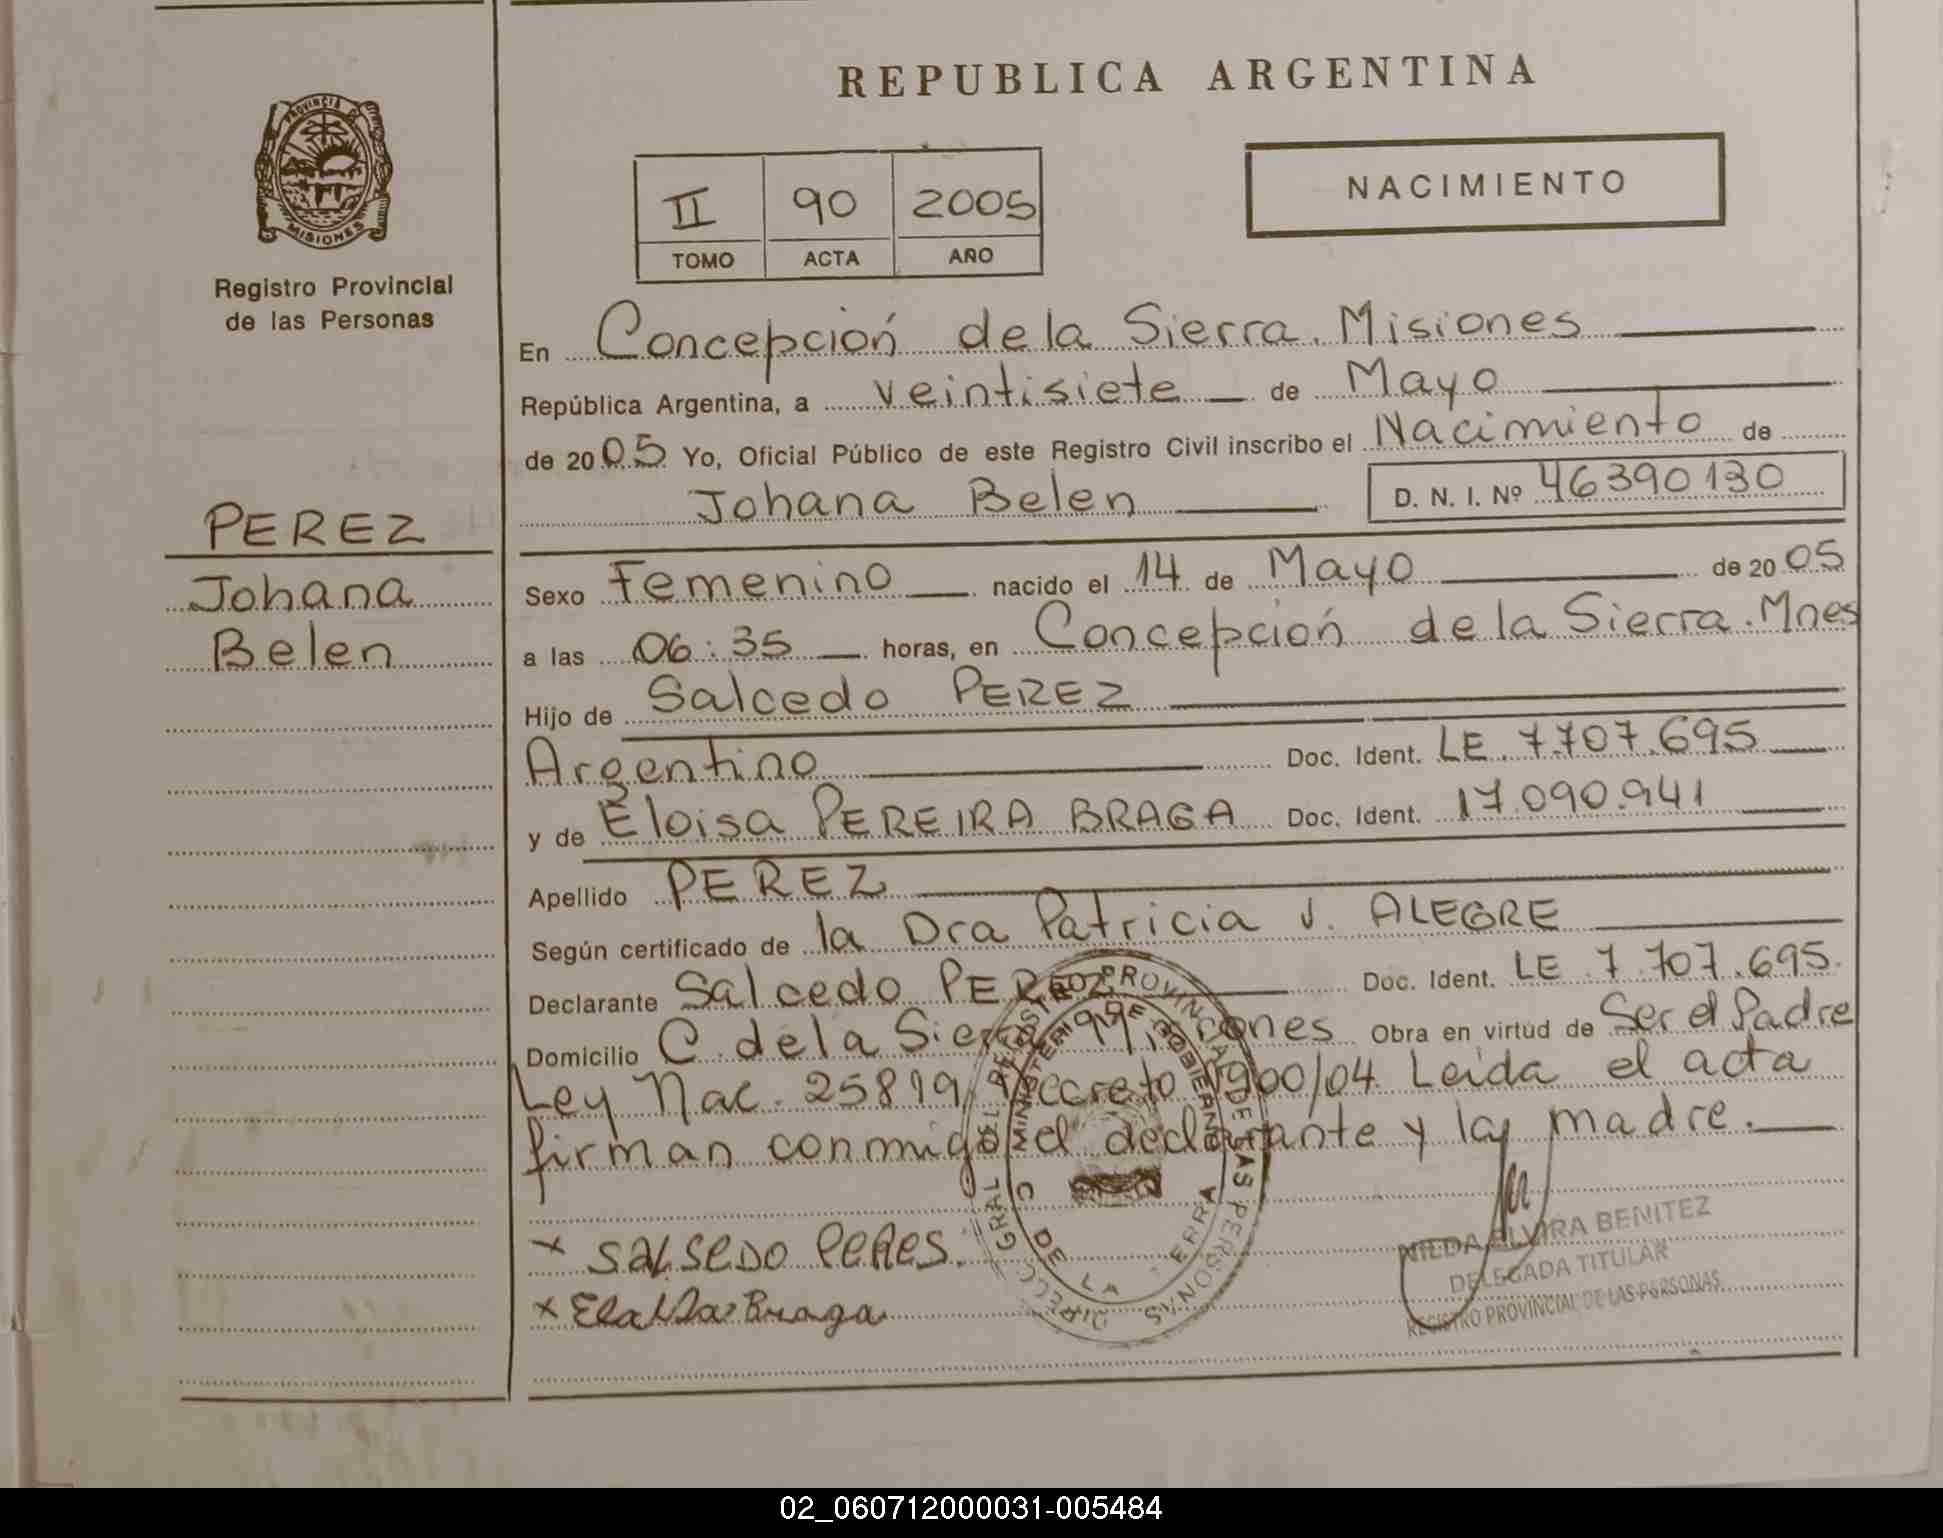 REPUBLICA ARGENTINA
PROVINCIA DE
MISIONES
Registro Provincial
de las Personas
II 90 2005
TOMO ACTA AÑO
NACIMIENTO
PEREZ
Johana
Belen
En Concepción de la Sierra. Misiones
República Argentina, a veintisiete de Mayo
de 2005 Yo, Oficial Público de este Registro Civil inscribo el Nacimiento de
Johana Belen D. N. I. Nº 46390130
Sexo Femenino nacido el 14 de Mayo de 2005
a las 06:35 horas, en Concepción de la Sierra. Mnes
Hijo de Salcedo PEREZ
Argentino Doc. Ident. LE. 7.707.695
y de Eloisa PEREIRA BRAGA Doc. Ident. 17.090.941
Apellido PEREZ
Según certificado de la Dra Patricia V. ALEGRE
Declarante Salcedo PEREZ Doc. Ident. LE 7.707.695.
Domicilio C. de la Sierra Obra en virtud de Ser el Padre
Ley Nac. 25819 Decreto 1900/04 Leída el acta
firman conmigo el declarante y la madre.
x SALSEDO PERES.
x Braga
MINISTERIO DE GOBIERNO
NILDA ELVIRA BENITEZ
DELEGADA TITULAR
REGISTRO PROVINCIAL DE LAS PERSONAS
02_060712000031-005484